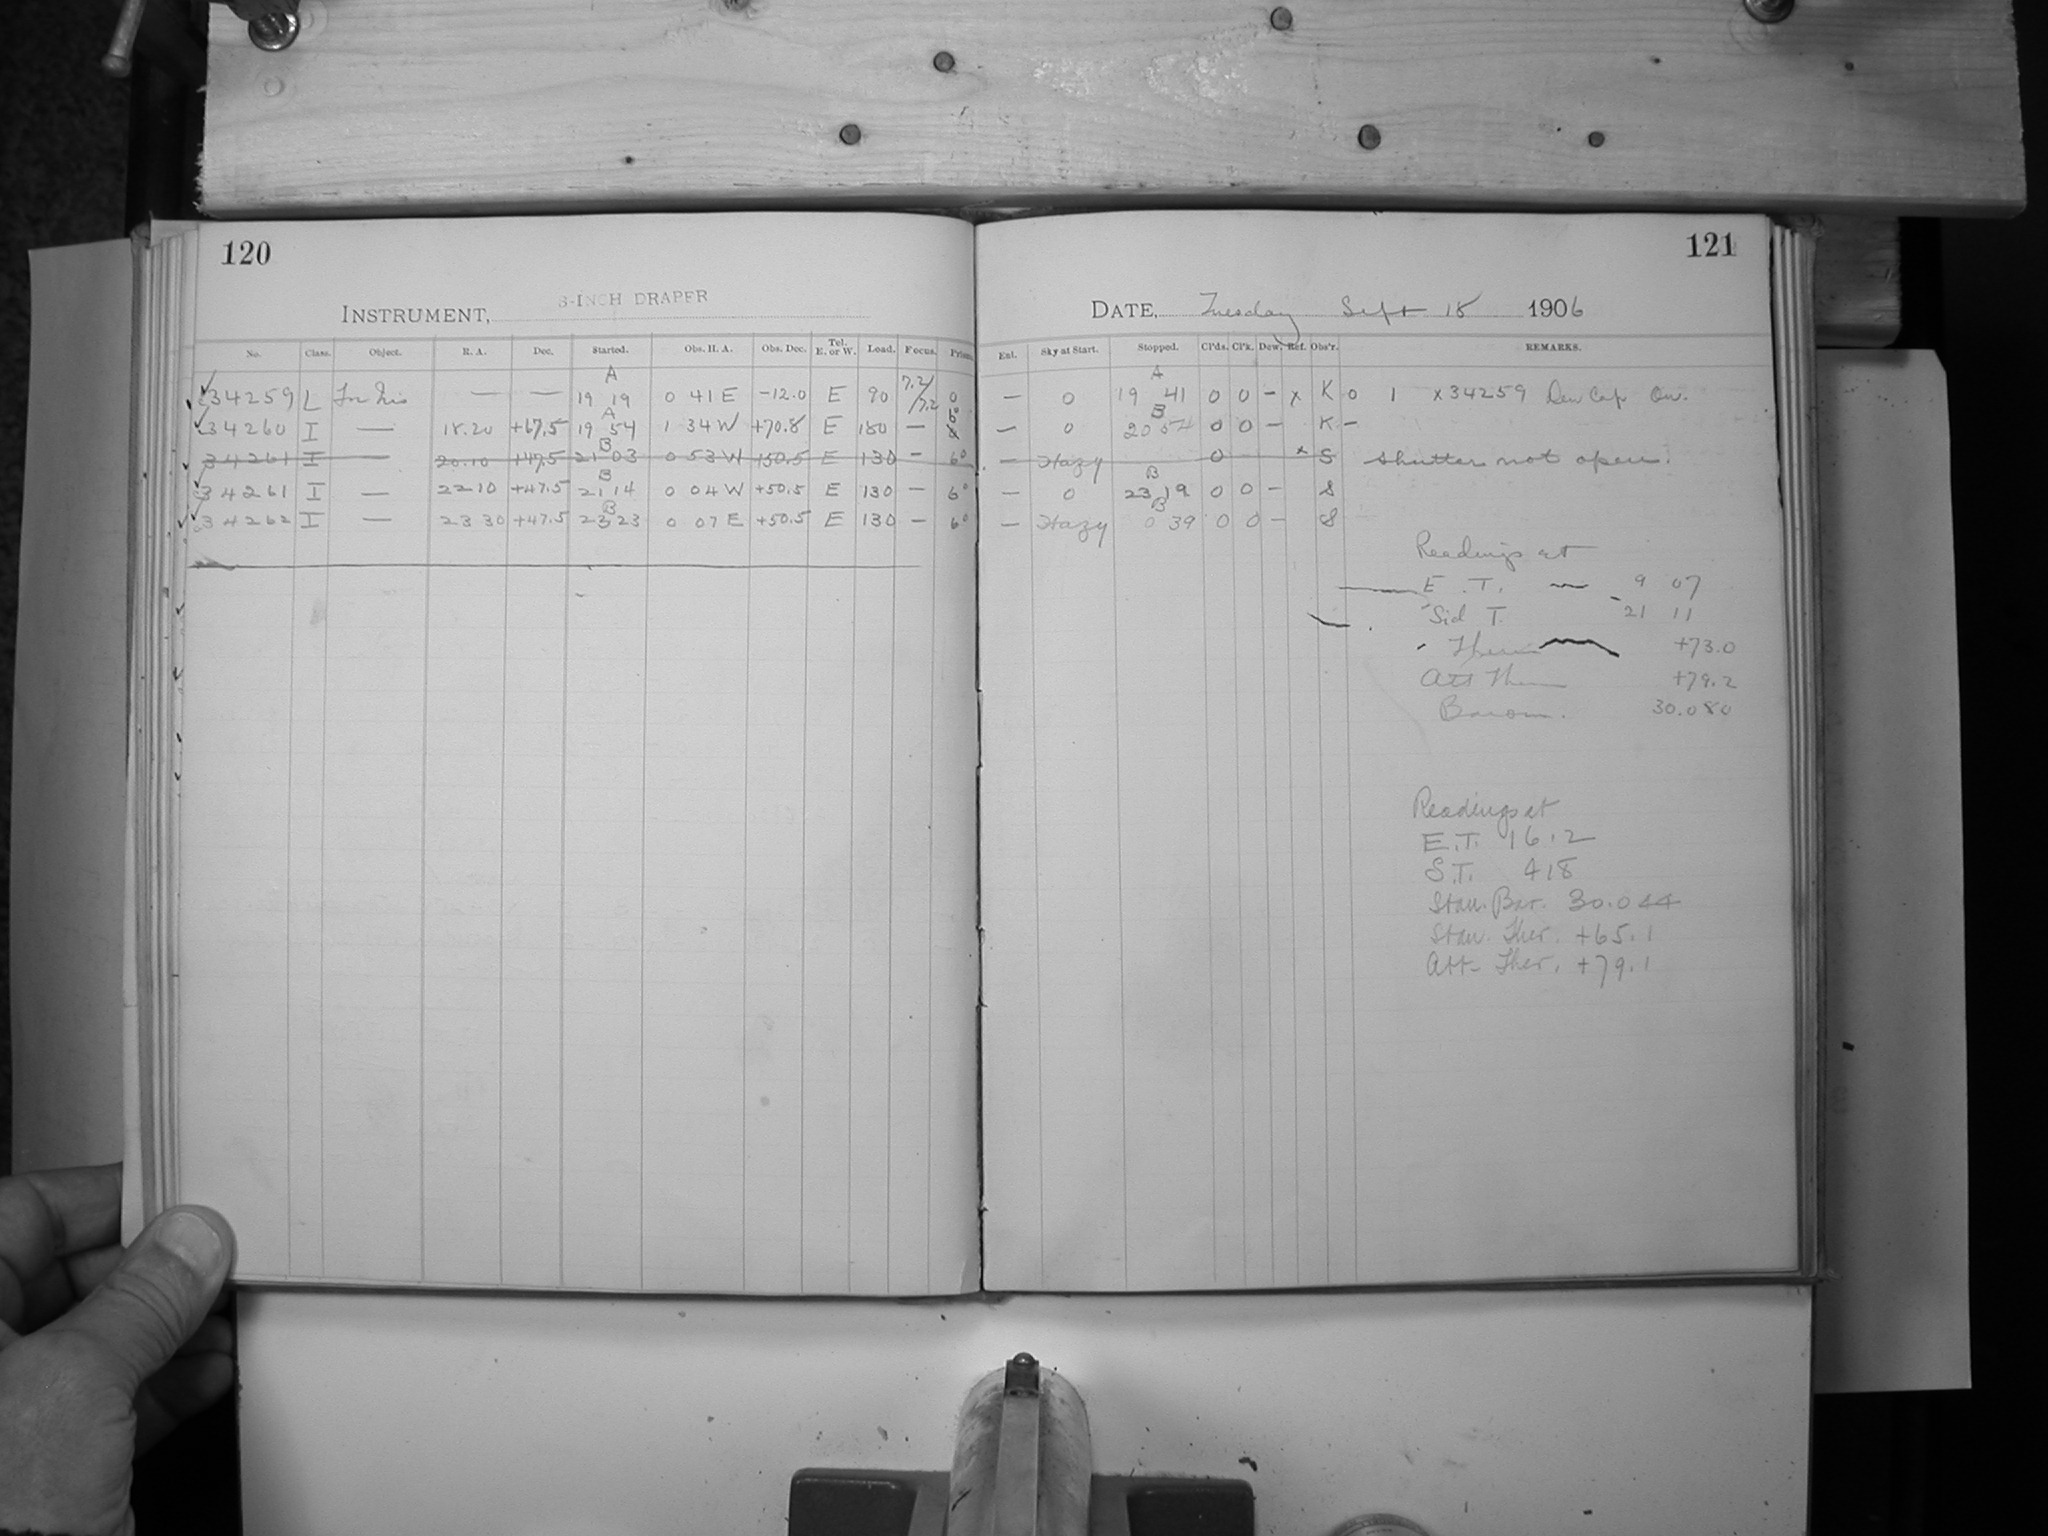 120
121
8-INCH DRAPER
INSTRUMENT,
DATE, Tuesday Sept 18 1906
No. Class. Object. R. A. Dec. Started. Obs. H. A. Obs. Dec. Tel. E. or W. Load. Focus. Prism.
Enl. Sky at Start. Stopped. Cl'ds. Cl'k. Dew. Ref. Obs'r. REMARKS.
A A
34259 L — — 19 19 0 41 E -12.0 E 90 7.2/7.2 0 — 0 19 41 0 0 - x K 0 1 x 34259 Dew Cap On.
A B
34260 I — 18.20 +67.5 19 54 1 34 W +70.8 E 180 — 6° — 0 20 54 0 0 — K —
B
34261 I — 20.10 +47.5 21 03 0 53 W +50.5 E 130 - 6° — Hazy 0 x S Shutter not open.
B B
34261 I — 22 10 +47.5 21 14 0 04 W +50.5 E 130 — 6° — 0 23 19 0 0 - S
B B
34262 I — 23 30 +47.5 23 23 0 07 E +50.5 E 130 — 6° — Hazy 0 39 0 0 - S
Readings at
E. T. 9 07
Sid T. 21 11
Ther +73.0
Att Ther +79.2
Barom. 30.080
Readings at
E.T. 16.12
S.T. 418
Stan. Bar. 30.044
Stan. Ther. +65.1
Att. Ther. +79.1